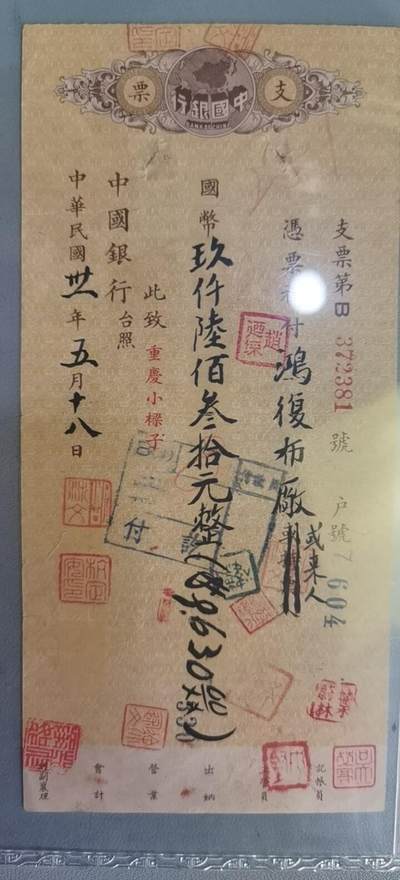 支票
中國銀行
支票第B 372381 號 戶號 7604
憑票祈付鴻復布廠或来人
國幣玖仟陸佰叁拾元整(9,630.00)
此致 重慶小樑子
中國銀行台照
中華民國卅一年五月十八日
付訖
記帳員
出納
營業
會計
襄理